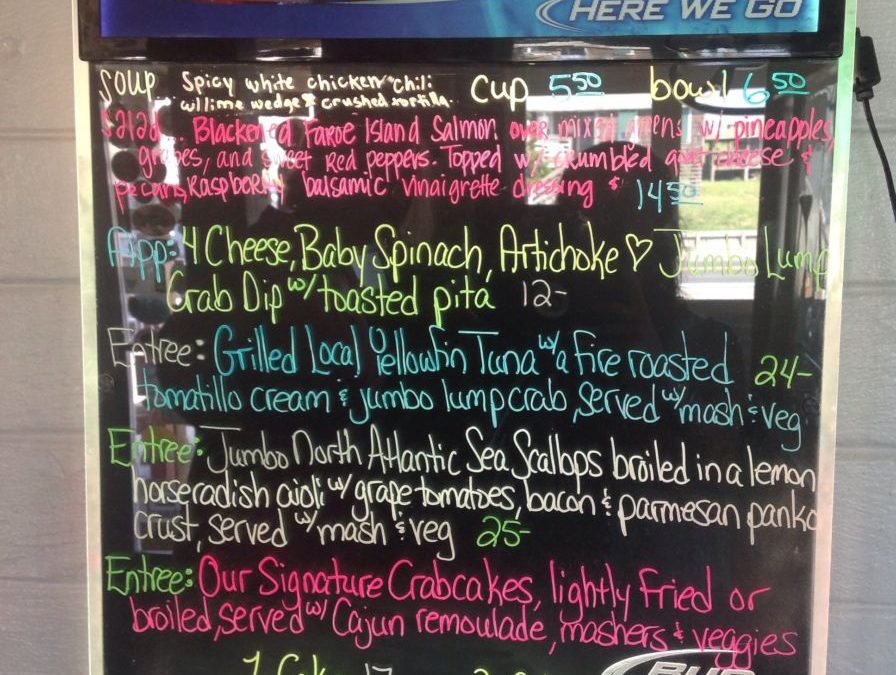 HERE WE GO
SOUP Spicy white chicken chili cup 5.50 bowl 6.50
w/ lime wedge & crushed tortilla.
Salad. Blackened Faroe Island Salmon over mixed greens w/ pineapples,
grapes, and sweet Red peppers. Topped w/ crumbled goat cheese &
pecans, Raspberry balsamic vinaigrette dressing 14.50
App: 4 Cheese, Baby Spinach, Artichoke ♡ Jumbo Lump
Crab Dip w/ toasted pita 12-
Entree: Grilled Local Yellowfin Tuna w/ a fire roasted 24-
tomatillo cream & jumbo lump crab, served w/ mash & veg
Entree: Jumbo North Atlantic Sea Scallops broiled in a lemon
horseradish aioli w/ grape tomatoes, bacon & parmesan panko
crust, served w/ mash & veg 25-
Entree: Our Signature Crabcakes, lightly fried or
broiled, served w/ Cajun remoulade, mashers & veggies
1 Cake 17
BUD